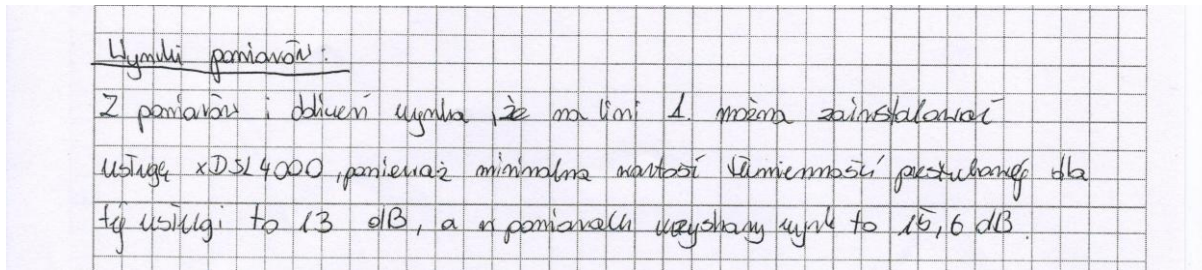 Wyniki pomiarów:
Z pomiarów i obliczeń wynika, że na linii 1. można zainstalować
usługę xDSL4000, ponieważ minimalna wartość tłumienności przesłuchowej dla
tej usługi to 13 dB, a w pomiarach uzyskany wynik to 15,6 dB.